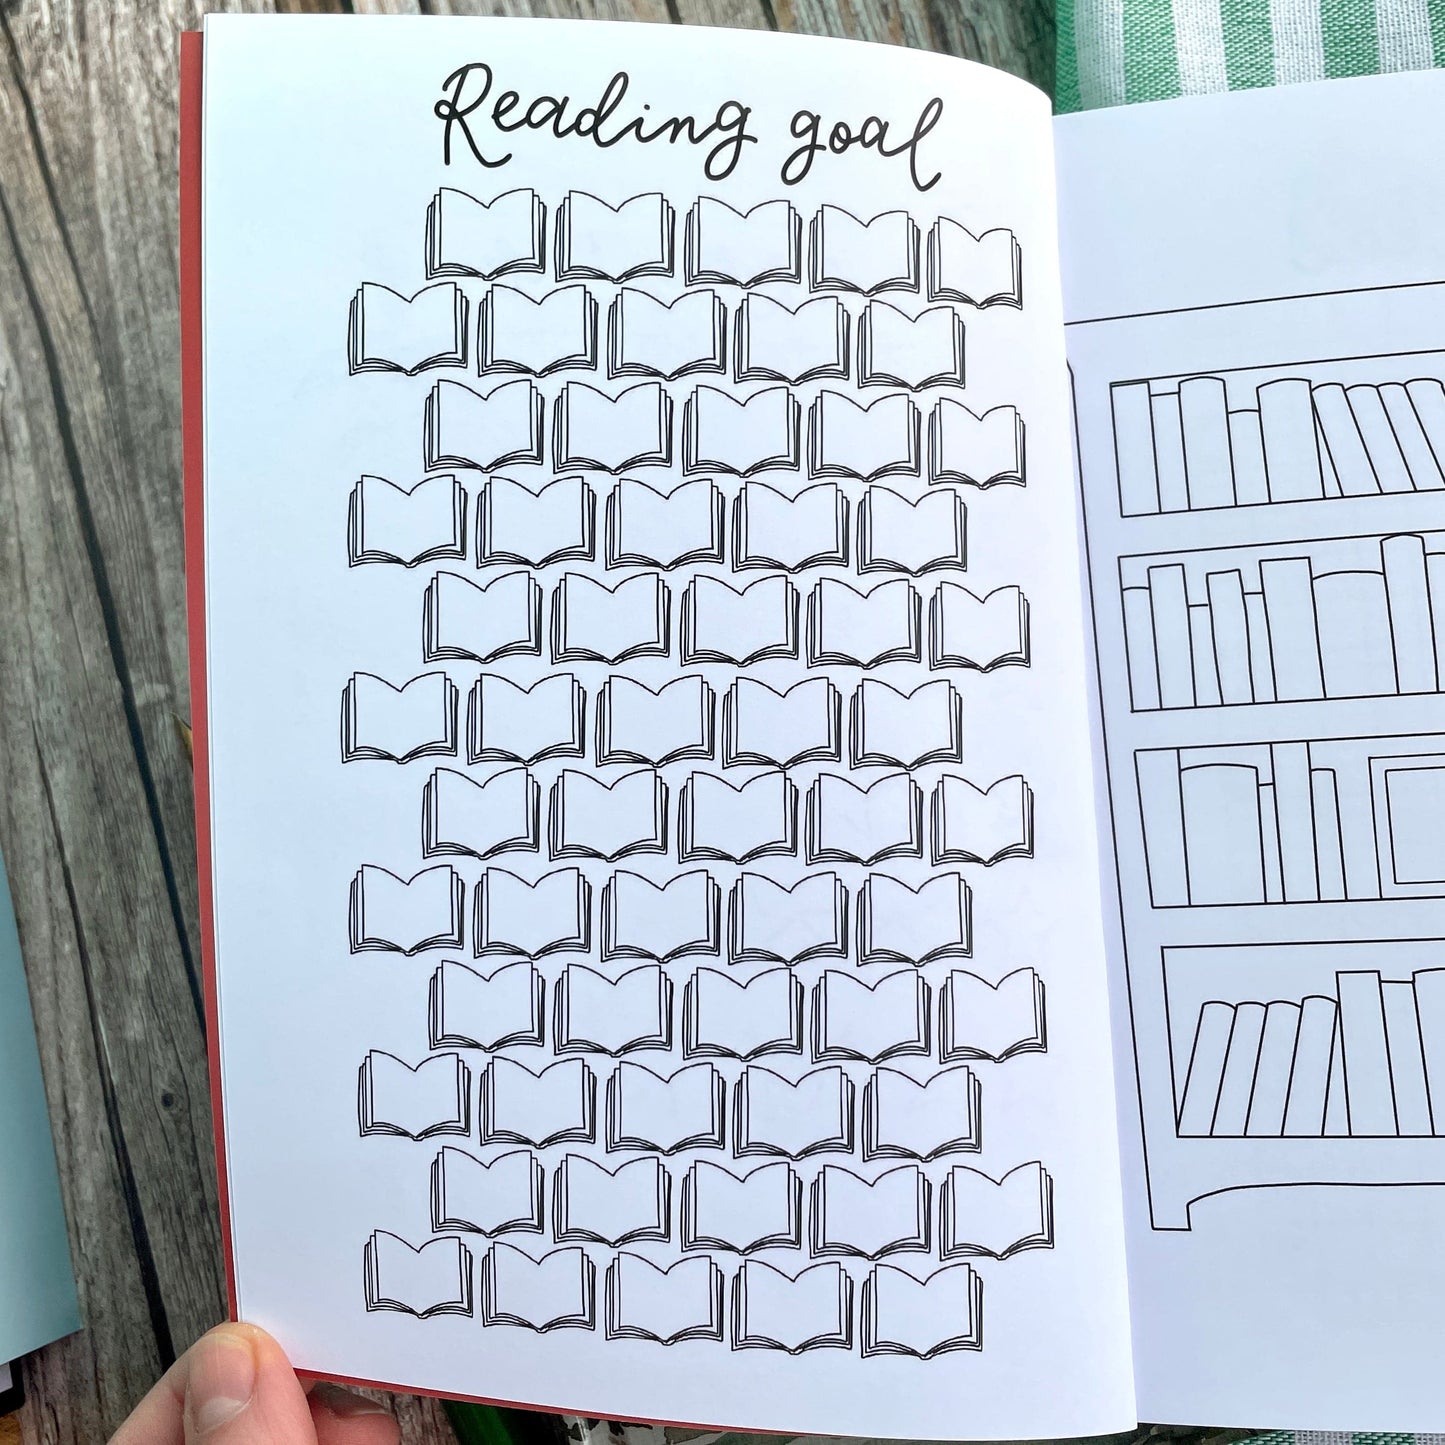 Reading goal